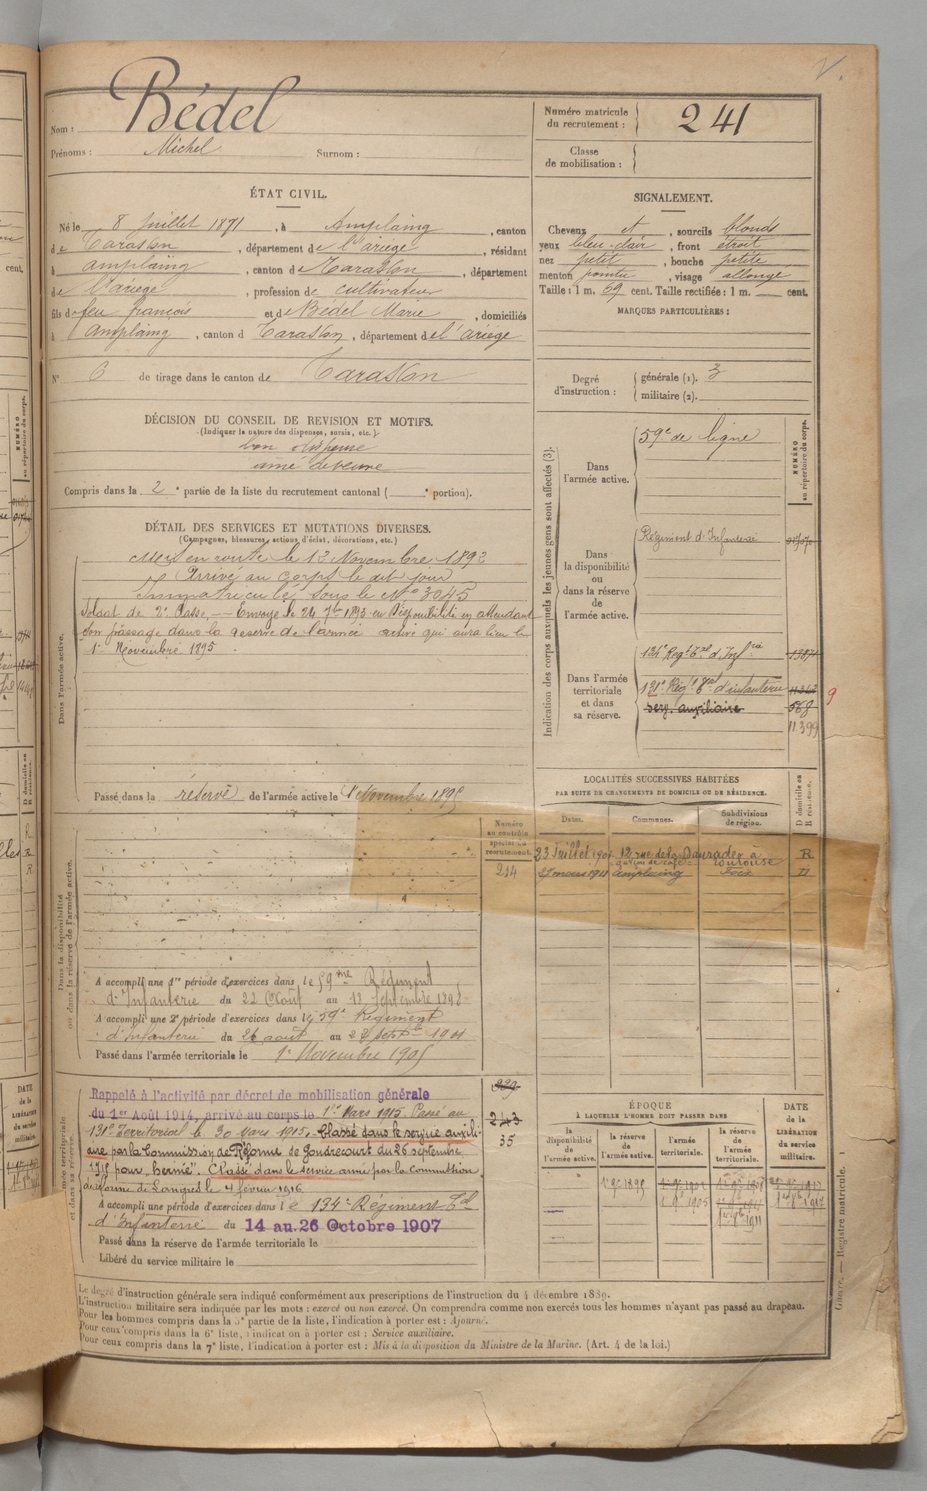 V.
Nom : Bédel
Prénoms : Michel Surnom :
Numéro matricule
du recrutement : 241
Classe
de mobilisation :
ÉTAT CIVIL.
Né le 8 Juillet 1871, à Amplaing, canton
de Tarascon, département de l'ariège, résidant
à amplaing, canton de Tarascon, département
de l'ariège, profession de cultivateur
fils de feu françois et de Bédel Marie, domiciliés
à Amplaing, canton d Tarascon, département de l'ariège
N° 6 de tirage dans le canton de Tarascon
SIGNALEMENT.
Cheveux et, sourcils blonds
yeux bleu-clair, front étroit
nez petit, bouche petite
menton pointu, visage allongé
Taille : 1 m. 69 cent. Taille rectifiée : 1 m. cent.
MARQUES PARTICULIÈRES :
Degré
d'instruction :
générale (1). 3
militaire (2).
DÉCISION DU CONSEIL DE REVISION ET MOTIFS.
(Indiquer la nature des dispenses, sursis, etc.)
bon dispensé
aîné de veuve
Compris dans la 2e partie de la liste du recrutement cantonal ( e portion).
DÉTAIL DES SERVICES ET MUTATIONS DIVERSES.
(Campagnes, blessures, actions d'éclat, décorations, etc.)
Dans l'armée active.
Mis en route le 12 Novembre 1892
Arrivé au Corps le dit jour
Immatriculé sous le N° 3045
Soldat de 2e Classe, — Envoyé le 24 7bre 1895 en Disponibilité en attendant
son passage dans la reserve de l'armée active qui aura lieu le
1er Novembre 1895.
Passé dans la réserve de l'armée active le 1er Novembre 1895
Indication des corps auxquels les jeunes gens sont affectés (3).
NUMÉRO
au répertoire du corps.
Dans
l'armée active.
59e de ligne
Dans
la disponibilité
ou
dans la réserve
de
l'armée active.
Régiment d'Infanterie
Dans l'armée
territoriale
et dans
sa réserve.
134e Regt Tal d'Infrie
131e Régt Tal d'infanterie
serv. auxiliaire
568
11399
9
LOCALITÉS SUCCESSIVES HABITÉES
PAR SUITE DE CHANGEMENTS DE DOMICILE OU DE RÉSIDENCE.
D domicile ou
R résidence.
Dates. Communes. Subdivisions
de région.
23 Juillet 1907 12 rue de la Daurade à Toulouse R
garçon de café
27 mars 1911 amplaing Foix D
Dans la disponibilité
ou dans la réserve de l'armée active.
Numéro
au contrôle
spécial du
recrutement.
214
A accompli une 1re période d'exercices dans le 59me Régiment
d'Infanterie du 22 Août au 18 Septembre 1898
A accompli une 2e période d'exercices dans le 59e Régiment
d'Infanterie du 26 août au 22 Septbre 1901
Passé dans l'armée territoriale le 1er Novembre 1905
Rappelé à l'activité par décret de mobilisation générale
du 1er Août 1914, arrivé au corps le 1er Mars 1915. Passé au
131e Territorial le 30 Mars 1915. Classé dans le service auxili-
aire par la Commission de Réforme de Gondrecourt du 26 septembre
1915 pour "hernie". Classé dans le service armé par la commission
de réforme de Langres le 4 février 1916
A accompli une période d'exercices dans le 134e Régiment Tal
d'Infanterie du 14 au 26 Octobre 1907
Passé dans la réserve de l'armée territoriale le
Libéré du service militaire le
229
243
35
ÉPOQUE
À LAQUELLE L'HOMME DOIT PASSER DANS
DATE
de la
LIBÉRATION
du service
militaire.
la
disponibilité
de
l'armée active.
la réserve
de
l'armée active.
l'armée
territoriale.
la réserve
de
l'armée
territoriale.
1er 9bre 1895
1er 9bre 1905
Le degré d'instruction générale sera indiqué conformément aux prescriptions de l'instruction du 4 décembre 1889.
L'instruction militaire sera indiquée par les mots : exercé ou non exercé. On comprendra comme non exercés tous les hommes n'ayant pas passé au drapeau.
Pour les hommes compris dans la 5e partie de la liste, l'indication à porter est : Ajourné.
Pour ceux compris dans la 6e liste, l'indication à porter est : Service auxiliaire.
Pour ceux compris dans la 7e liste, l'indication à porter est : Mis à la disposition du Ministre de la Marine. (Art. 4 de la loi.)
Guerre. — Registre matricule. 1